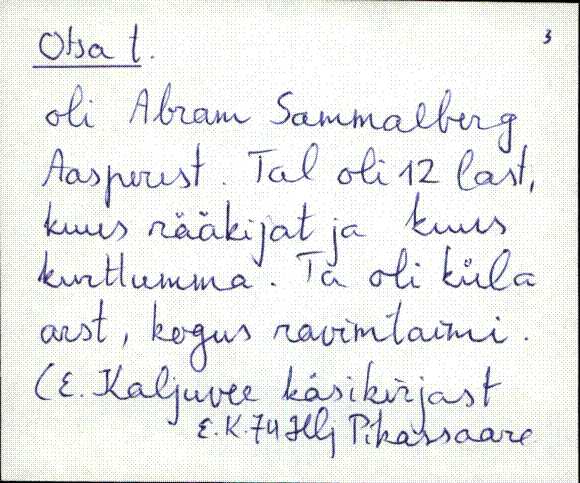 Otsa t. 3
oli Abram Sammalberg
Aasperest. Tal oli 12 last,
kuus rääkijat ja kuus
kurttumma. Ta oli küla
arst, kogus ravimtaimi.
(E. Kaljuvee käsikirjast
E.K.74 Hlj Pikassaare